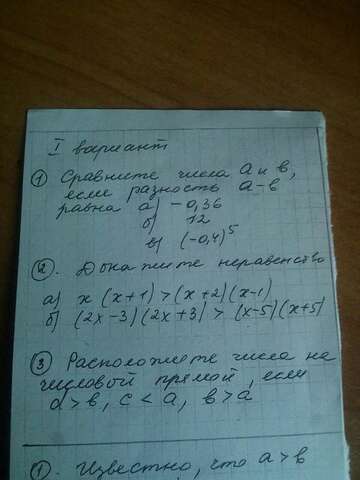 I вариант
① Сравните числа a и b,
если разность a-b
равна а) -0,36
б) 12
в) (-0,4)⁵
②. Докажите неравенство
а) x (x+1) > (x+2)(x-1)
б) (2x-3)(2x+3) > (x-5)(x+5)
③ Расположите числа на
числовой прямой, если
d > b, c < a, b > a
①. Известно, что a > b